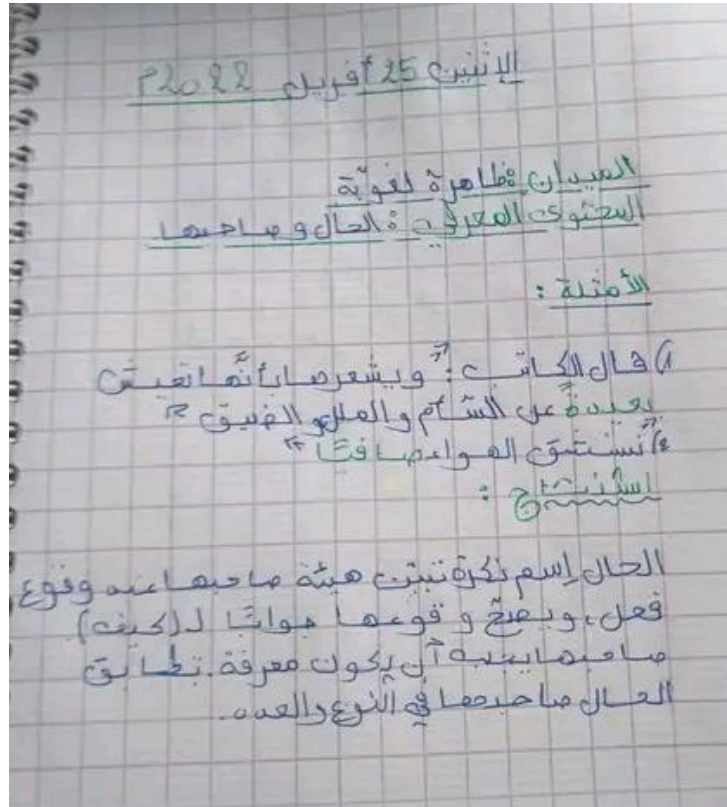 الإثنين 25 أفريل 2022م
الميدان: ظاهرة لغوية
المحتوى المعرفي: الحال وصاحبها
الأمثلة:
1) قال الكاتب: "ويشعرها بأنها تعيش
بعيدة عن السأم والملل والضيق"
2) "نستنشق الهواء صافيًا"
استنتاج:
الحال إسم نكرة تبين هيئة صاحبها عند وقوع
فعل، ويصح وقوعها جوابًا لـ(كيف)
صاحبها يجب أن يكون معرفة. تطابق
الحال صاحبها في النوع والعدد.